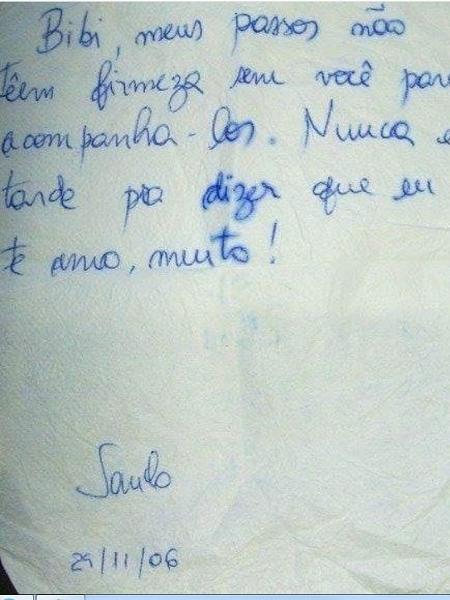 Bibi, meus passos não
têem firmeza sem você par
acompanha-los. Nunca e
tarde pra dizer que eu
te amo, muito!
Saulo
29/11/06